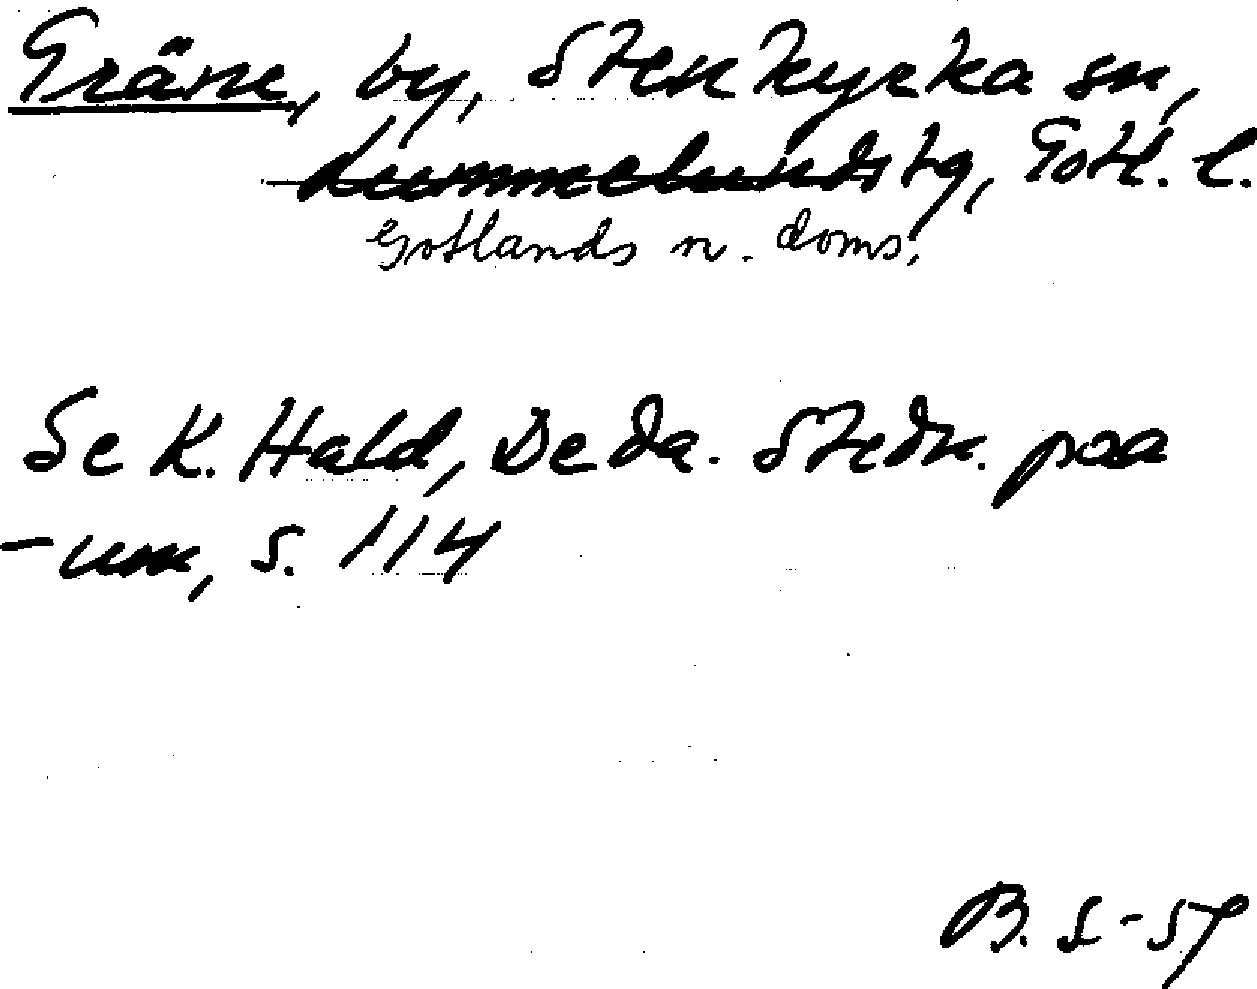 Gräne, by, Stenkyrka sn,
Lummelunds tg, Gotl. l.
Gotlands n. doms.
Se K. Hald, De da. Stedn. paa
-um, s. 114
B. S-57